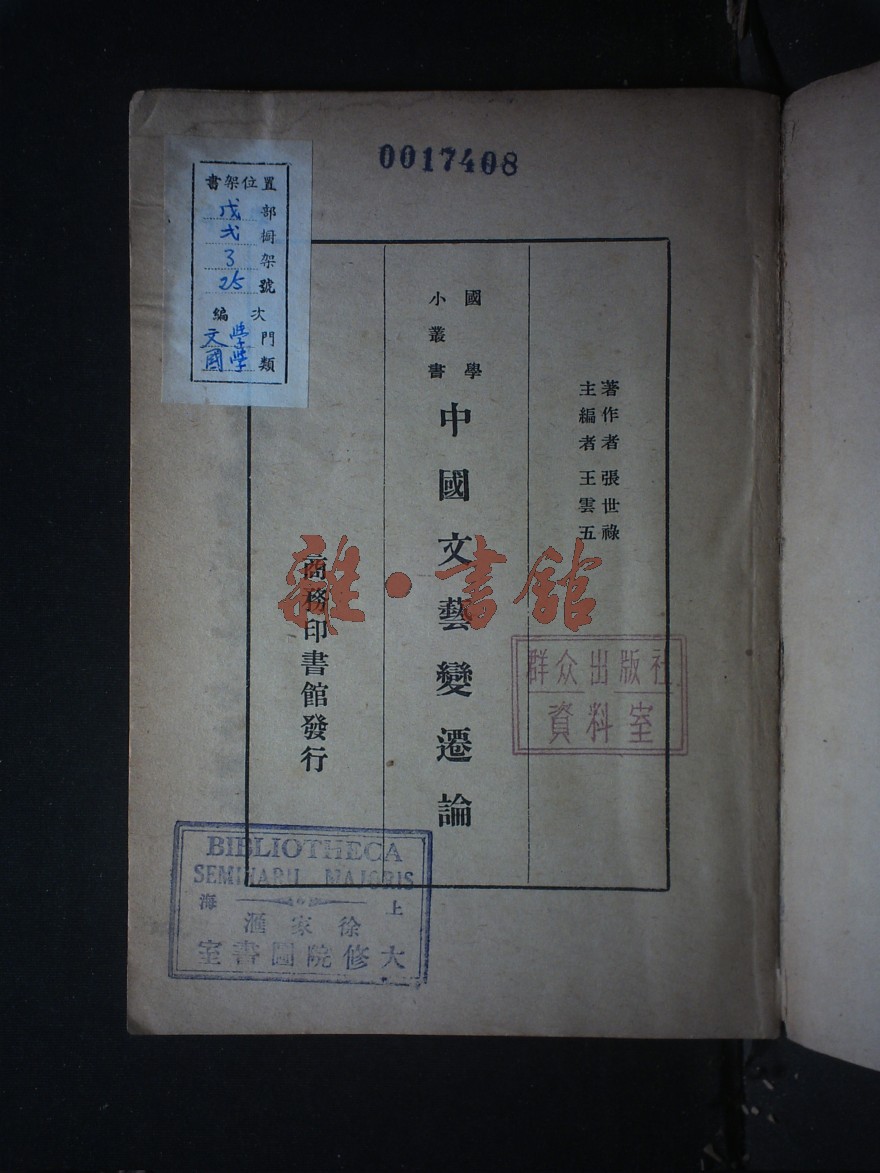 0017408
置位架書
部 戊
櫥 弍
架 3
號 25
次編
門 文學
類 國學
著作者 張世祿
主編者 王雲五
國學
小叢書
中國文藝變遷論
商務印書館發行
雜·書館
群众出版社
資料室
BIBLIOTHECA
SEMINARII MAJORIS
上海
徐家滙
大修院圖書室